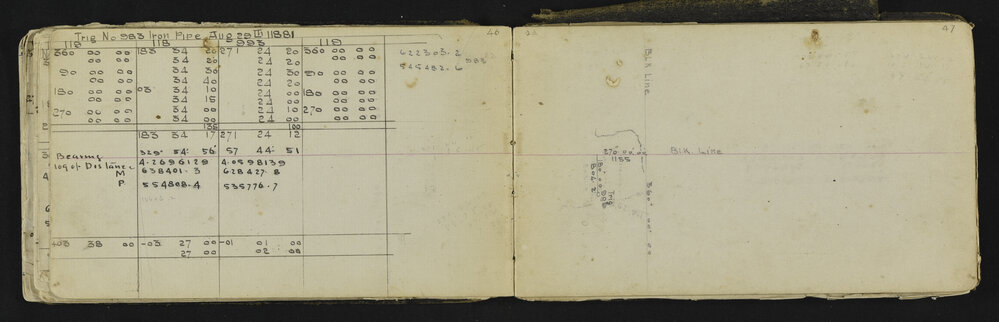 Trig No 983 Iron Pipe Aug 29th 11881
46
115 118 993 119
360 00 00 183 34 20 271 24 20 360 00 00
00 00 34 20 24 20 00 00
90 00 00 34 30 24 30 90 00 00
00 00 34 40 24 20 00 00
180 00 00 03 34 10 24 00 180 00 00
00 00 34 15 24 00 00 00
270 00 00 34 00 24 10 270 00 00
00 00 34 00 24 00 00 00
135 100
183 34 17 271 24 12
Bearing 329 54 56 57 44 51
log of Distance 4.2696129 4.0598139
M 638401.3 628427.8
P 554808.4 535776.7
403 38 00 -03 27 00 -01 01 00
27 00 02 00
622303.2
545482.6
983
47
Blk Line
270 00 00
1155
Blk. Line
Trig
360° 00' 00